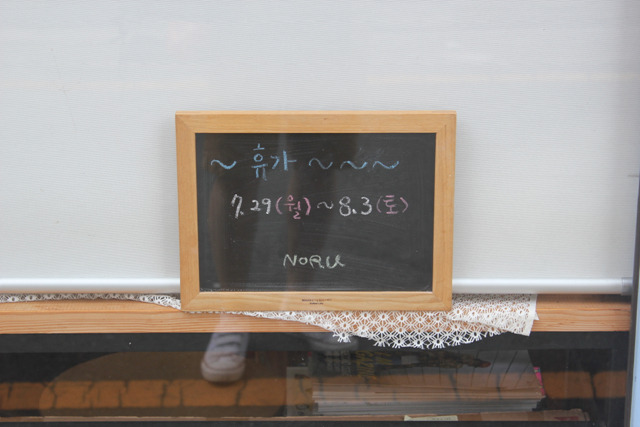 ~ 휴가 ~ ~ ~
7.29(월) ~ 8.3(토)
NORU